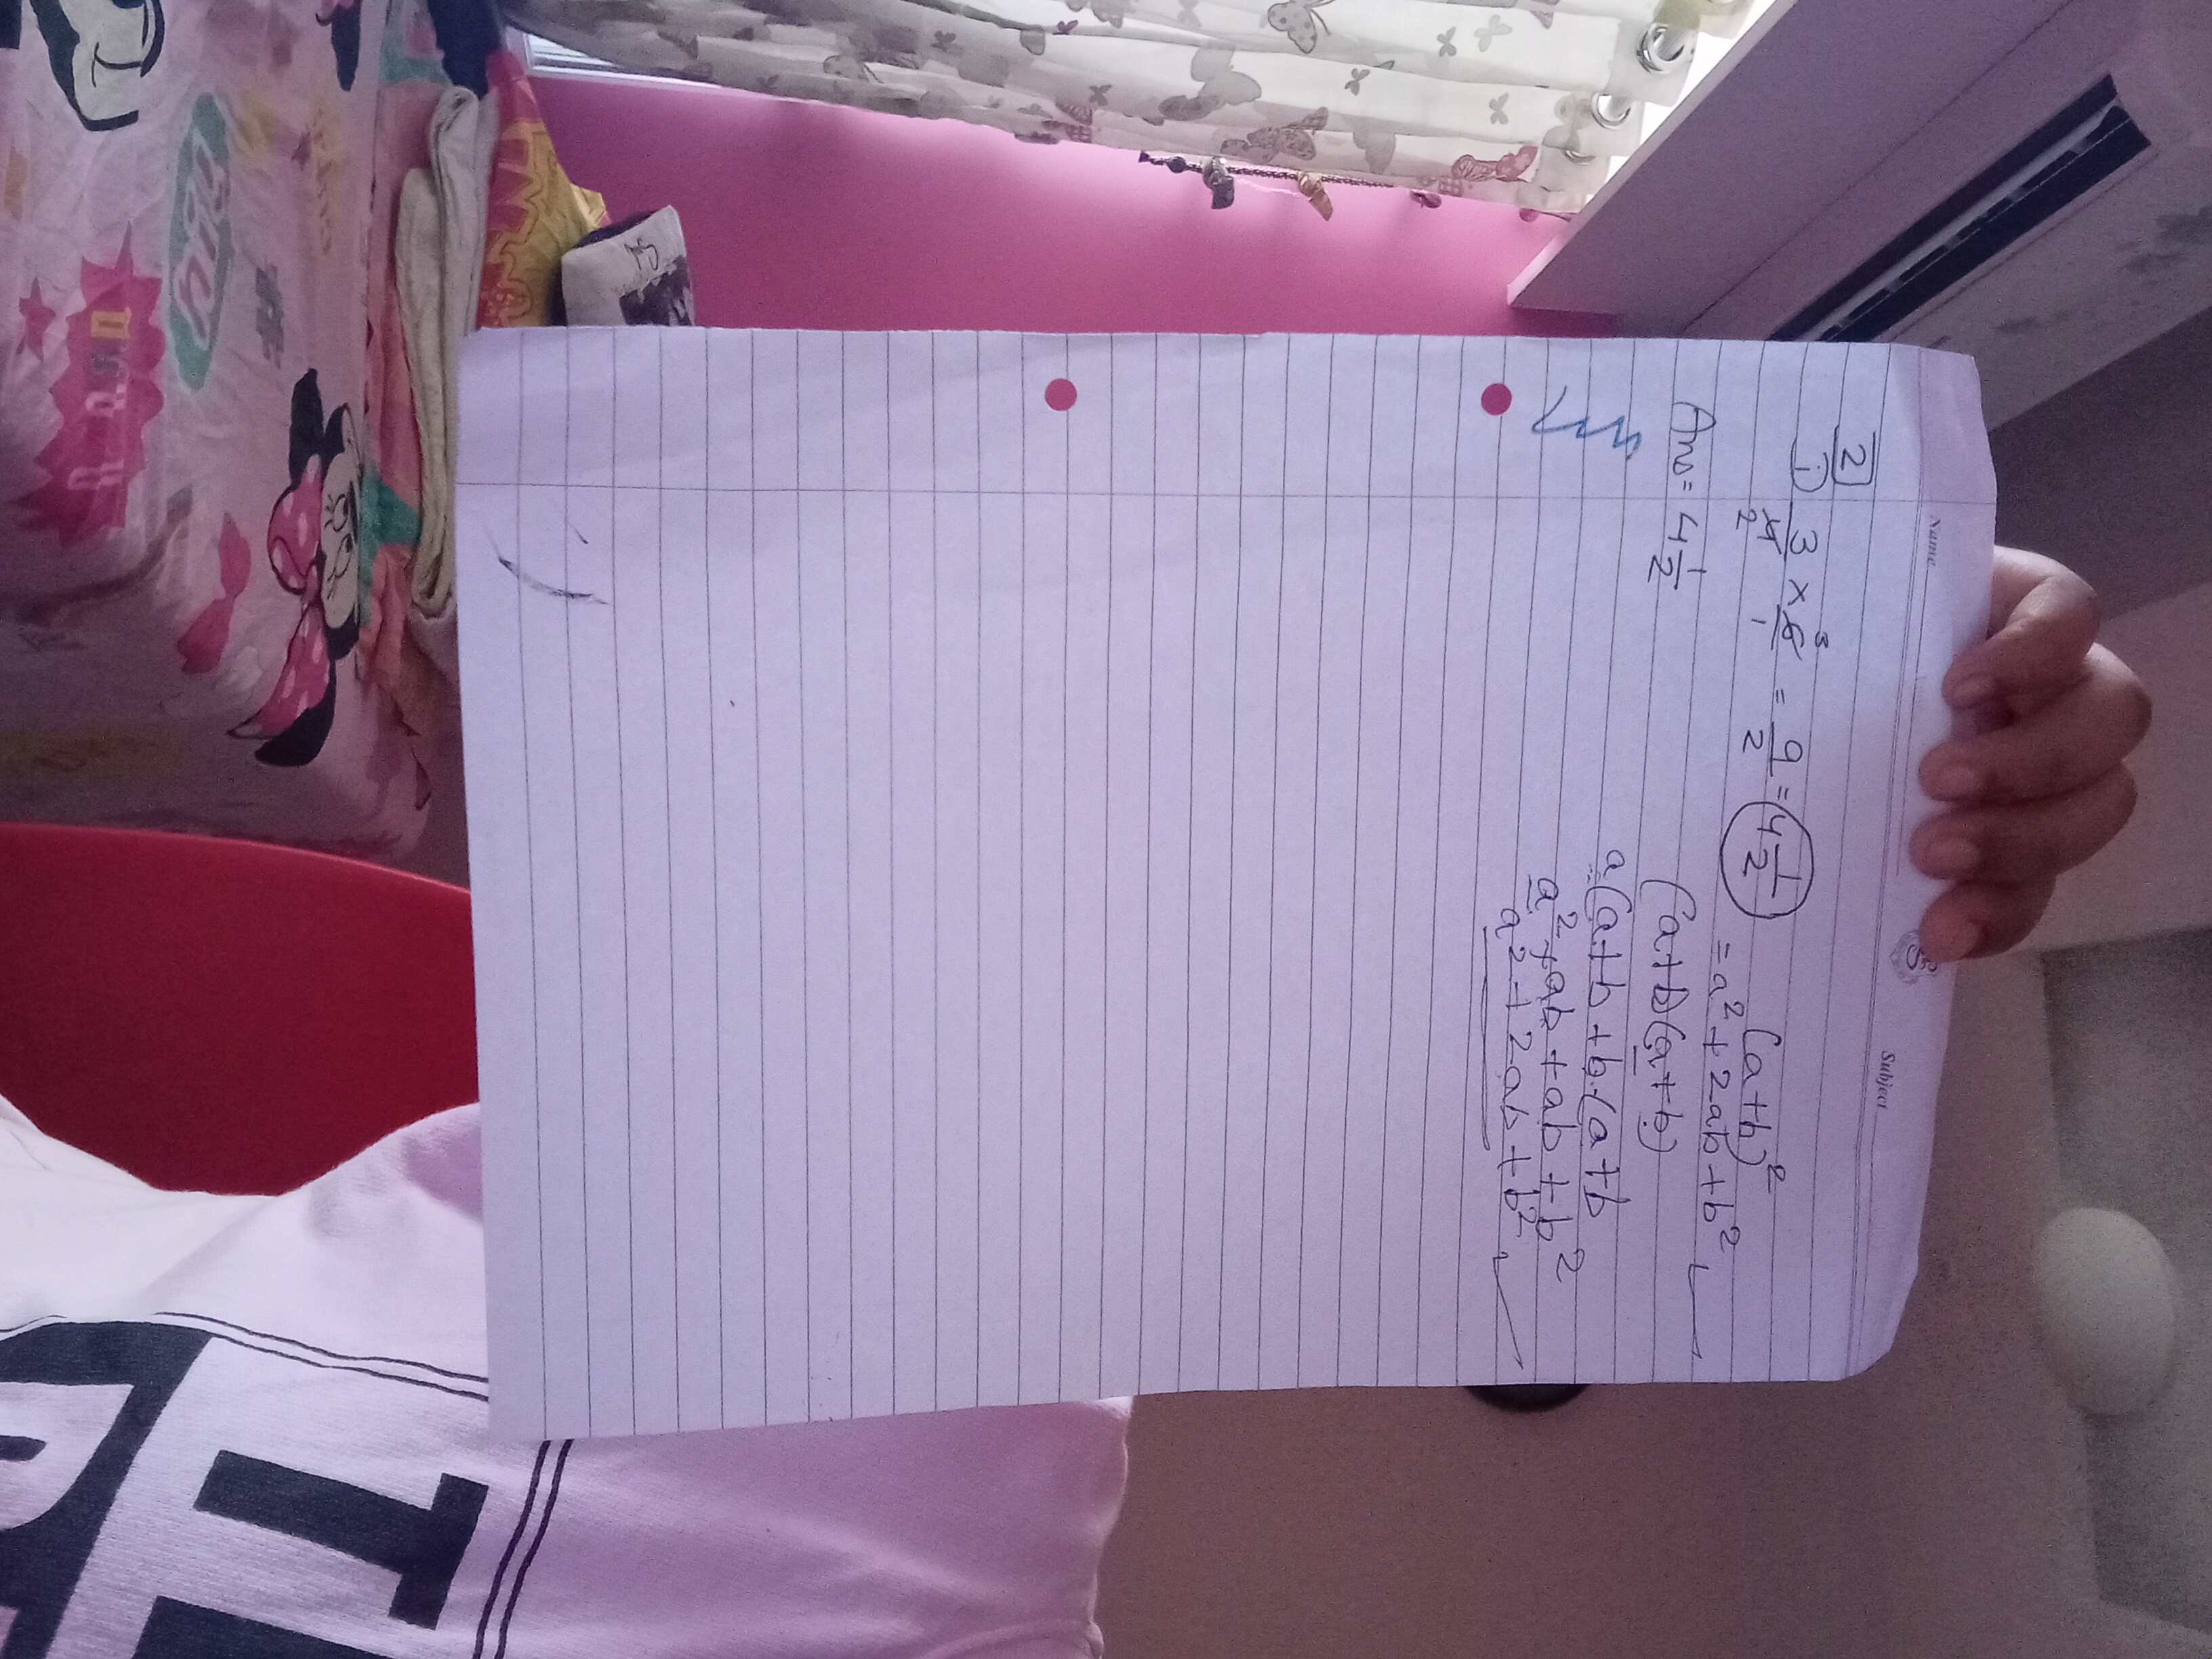 Name
Subject
2
i) 3/4 × 6/1 = 9/2 = 4 1/2
2 3
Ans = 4 1/2
(a+b)²
= a² + 2ab + b²
(a+b)(a+b)
a(a+b + b.(a+b
a² + ab + ab + b²
a² + 2ab + b²
T